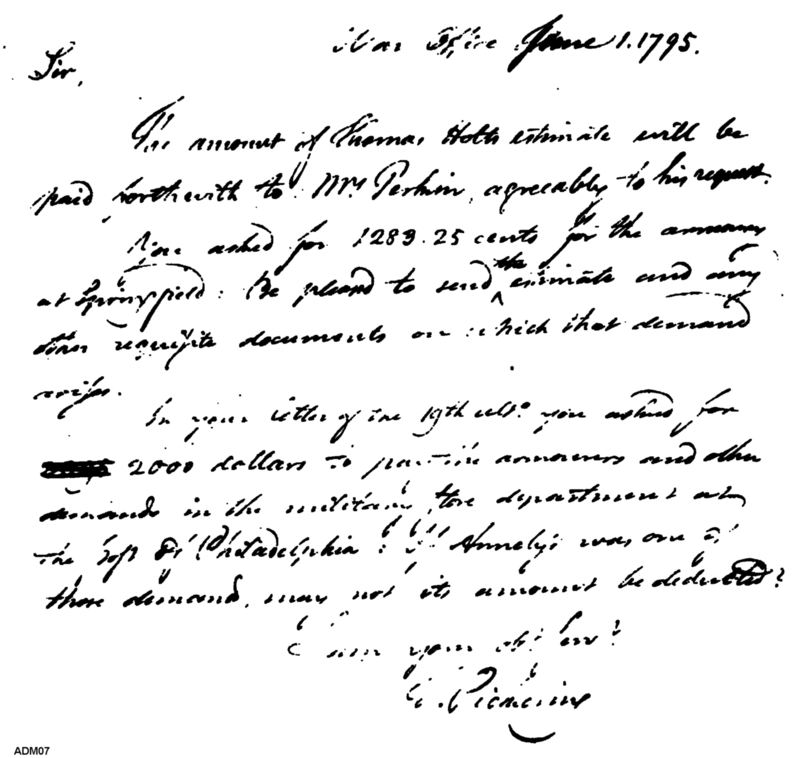 War Office June 1. 1795.
Sir,
The amount of Thomas Holts estimate will be
paid forthwith to Mr. Perkin, agreeably to his request.
You asked for 1283.25 cents for the armoury
at Springfield: Be pleased to send the estimate and any
other requisite documents on which that demand
arises.
In your letter of the 19th ulto. you asked for
2000 dollars to pay the armourers and other
demands in the military store department at
the Philadelphia: If Annely's was one of
those demands, may not its amount be deducted?
I am your obt. servt.
T. Pickering
ADM07